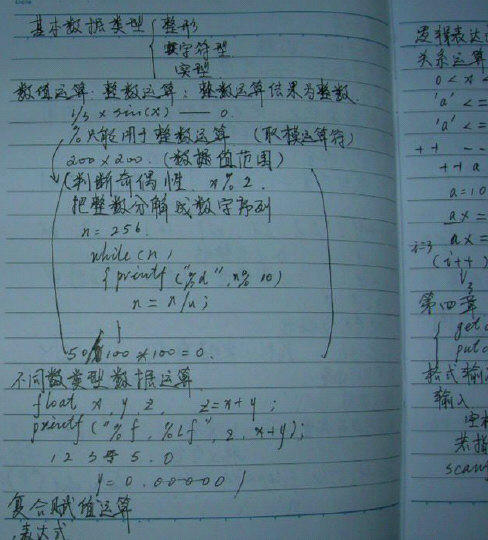 基本数据类型 { 整形
字符型
实型
数值运算：整数运算：整数运算结果为整数.
1/3 * sin(x) —— 0.
% 只能用于整数运算 (取模运算符)
200 × 200. (数据值范围)
(判断奇偶性. x % 2.
把整数分解成数字序列
n = 256.
while (n)
{ printf ("%d", n% 10)
n = n/
}
50/100 * 100 = 0.
不同数类型数据运算.
float x, y, z, z = x + y ;
printf ("%f, %Lf", z, x+y);
1 2 3 4 5 . 0
y = 0.000001
复合赋值运算
表达式
逻辑表达
关系运算
0 < x <
'a' <=
'a' <=
++ --
++ a
a = 10
ax =
i=3 ax =
(i++)
3
第四章
{ getc
putc
格式输
输入
空格
若指
scanf